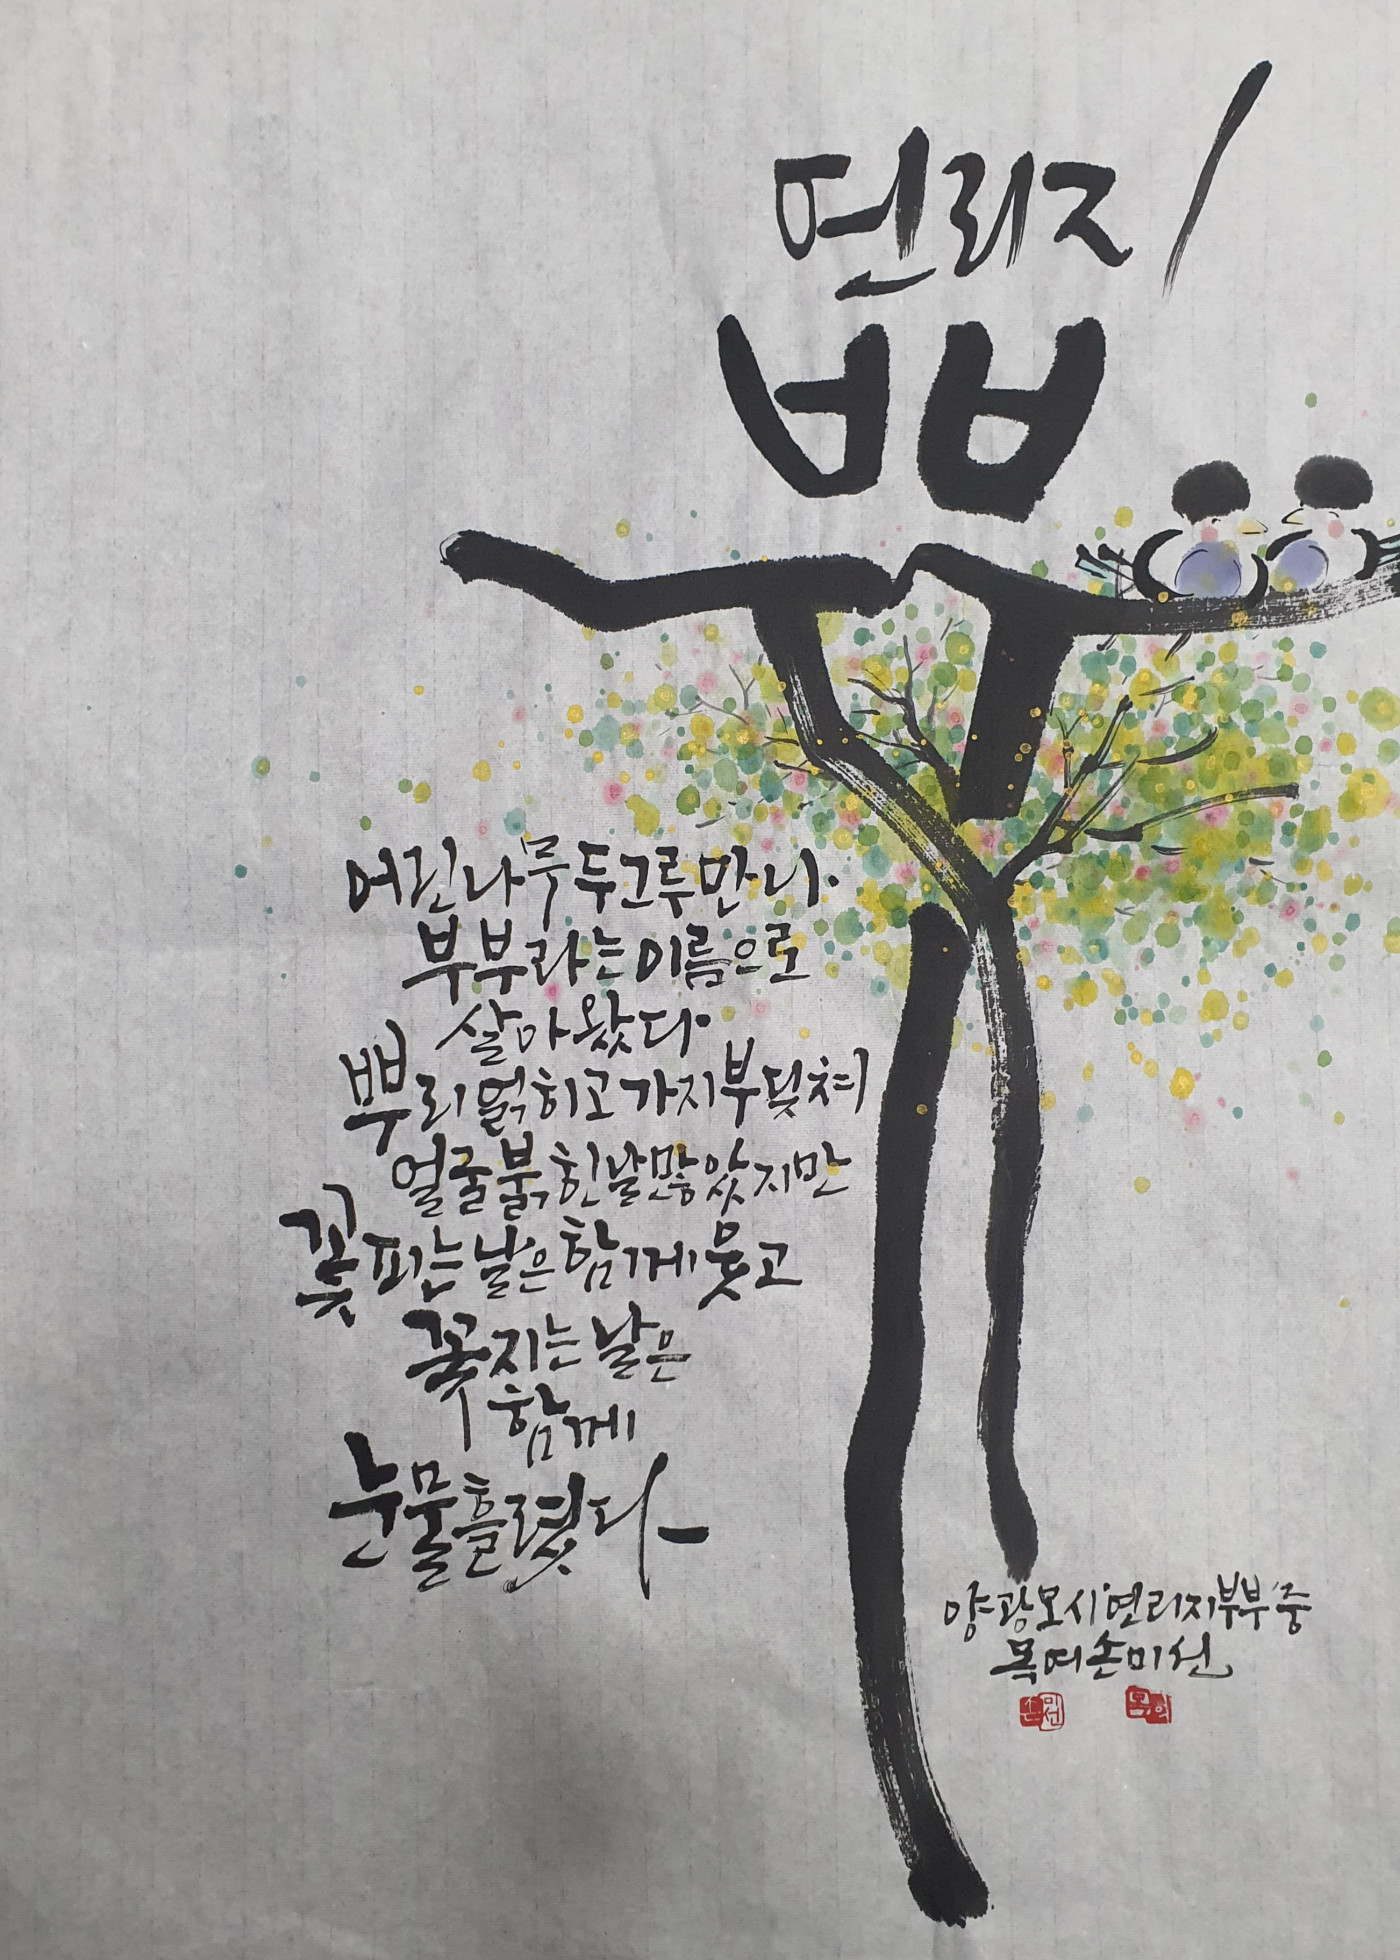 연리지
부부
어린나무 두그루 만나
부부라는 이름으로
살아왔다
뿌리 얽히고 가지 부딪쳐
얼굴 붉힌 날 많았지만
꽃피는 날은 함께 웃고
꽃지는 날은
함께
눈물 흘렸다
양광모 시 '연리지 부부' 중
목여 손미선
손미선